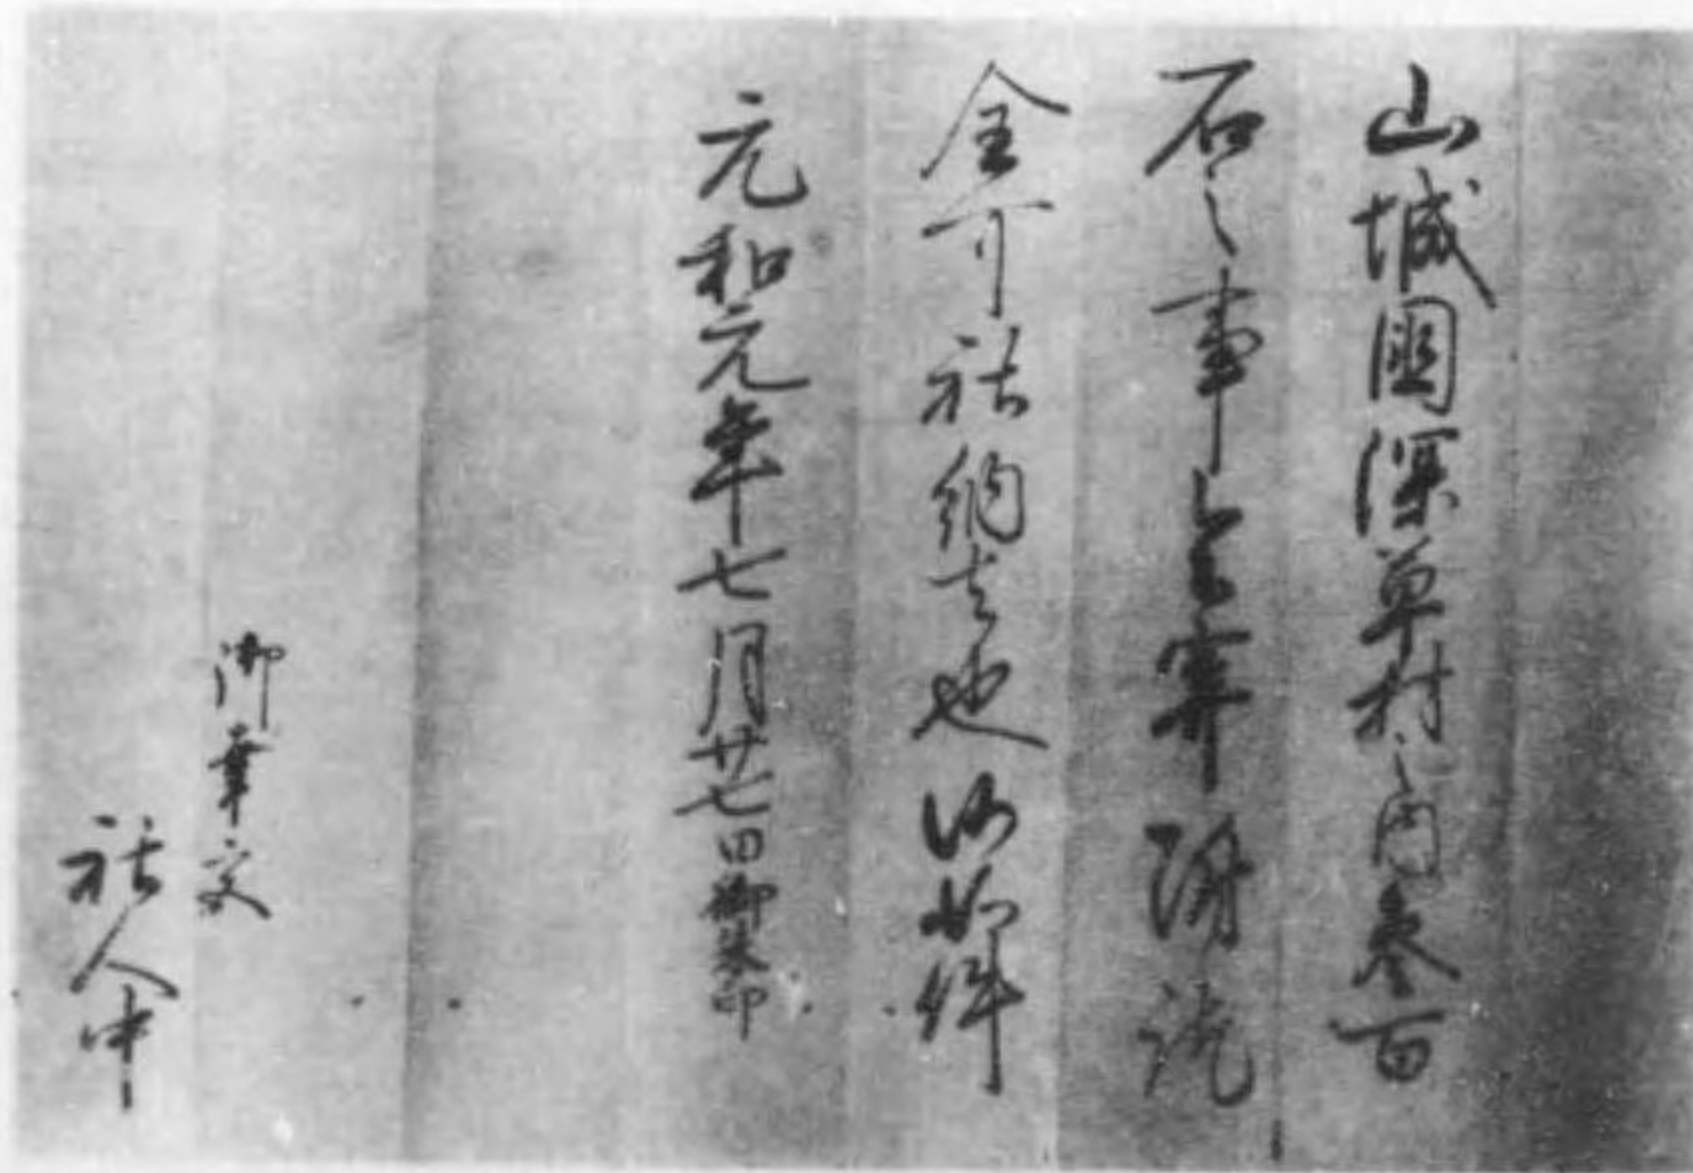 山城國深草村之内参百
石之事令寄附訖
全可社納者也仍如件
元和元年七月廿七日御朱印
御幸宮
社人中